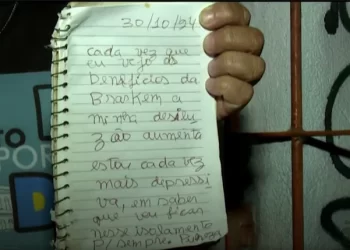 30/10/24
cada vez que
eu vejo os
beneficios da
Braskem a
minha desilu
zão aumenta
estou cada vez
mais depressi
va, em saber
que vou ficar
nesse isolamento
p/ sempre.
TO
POR